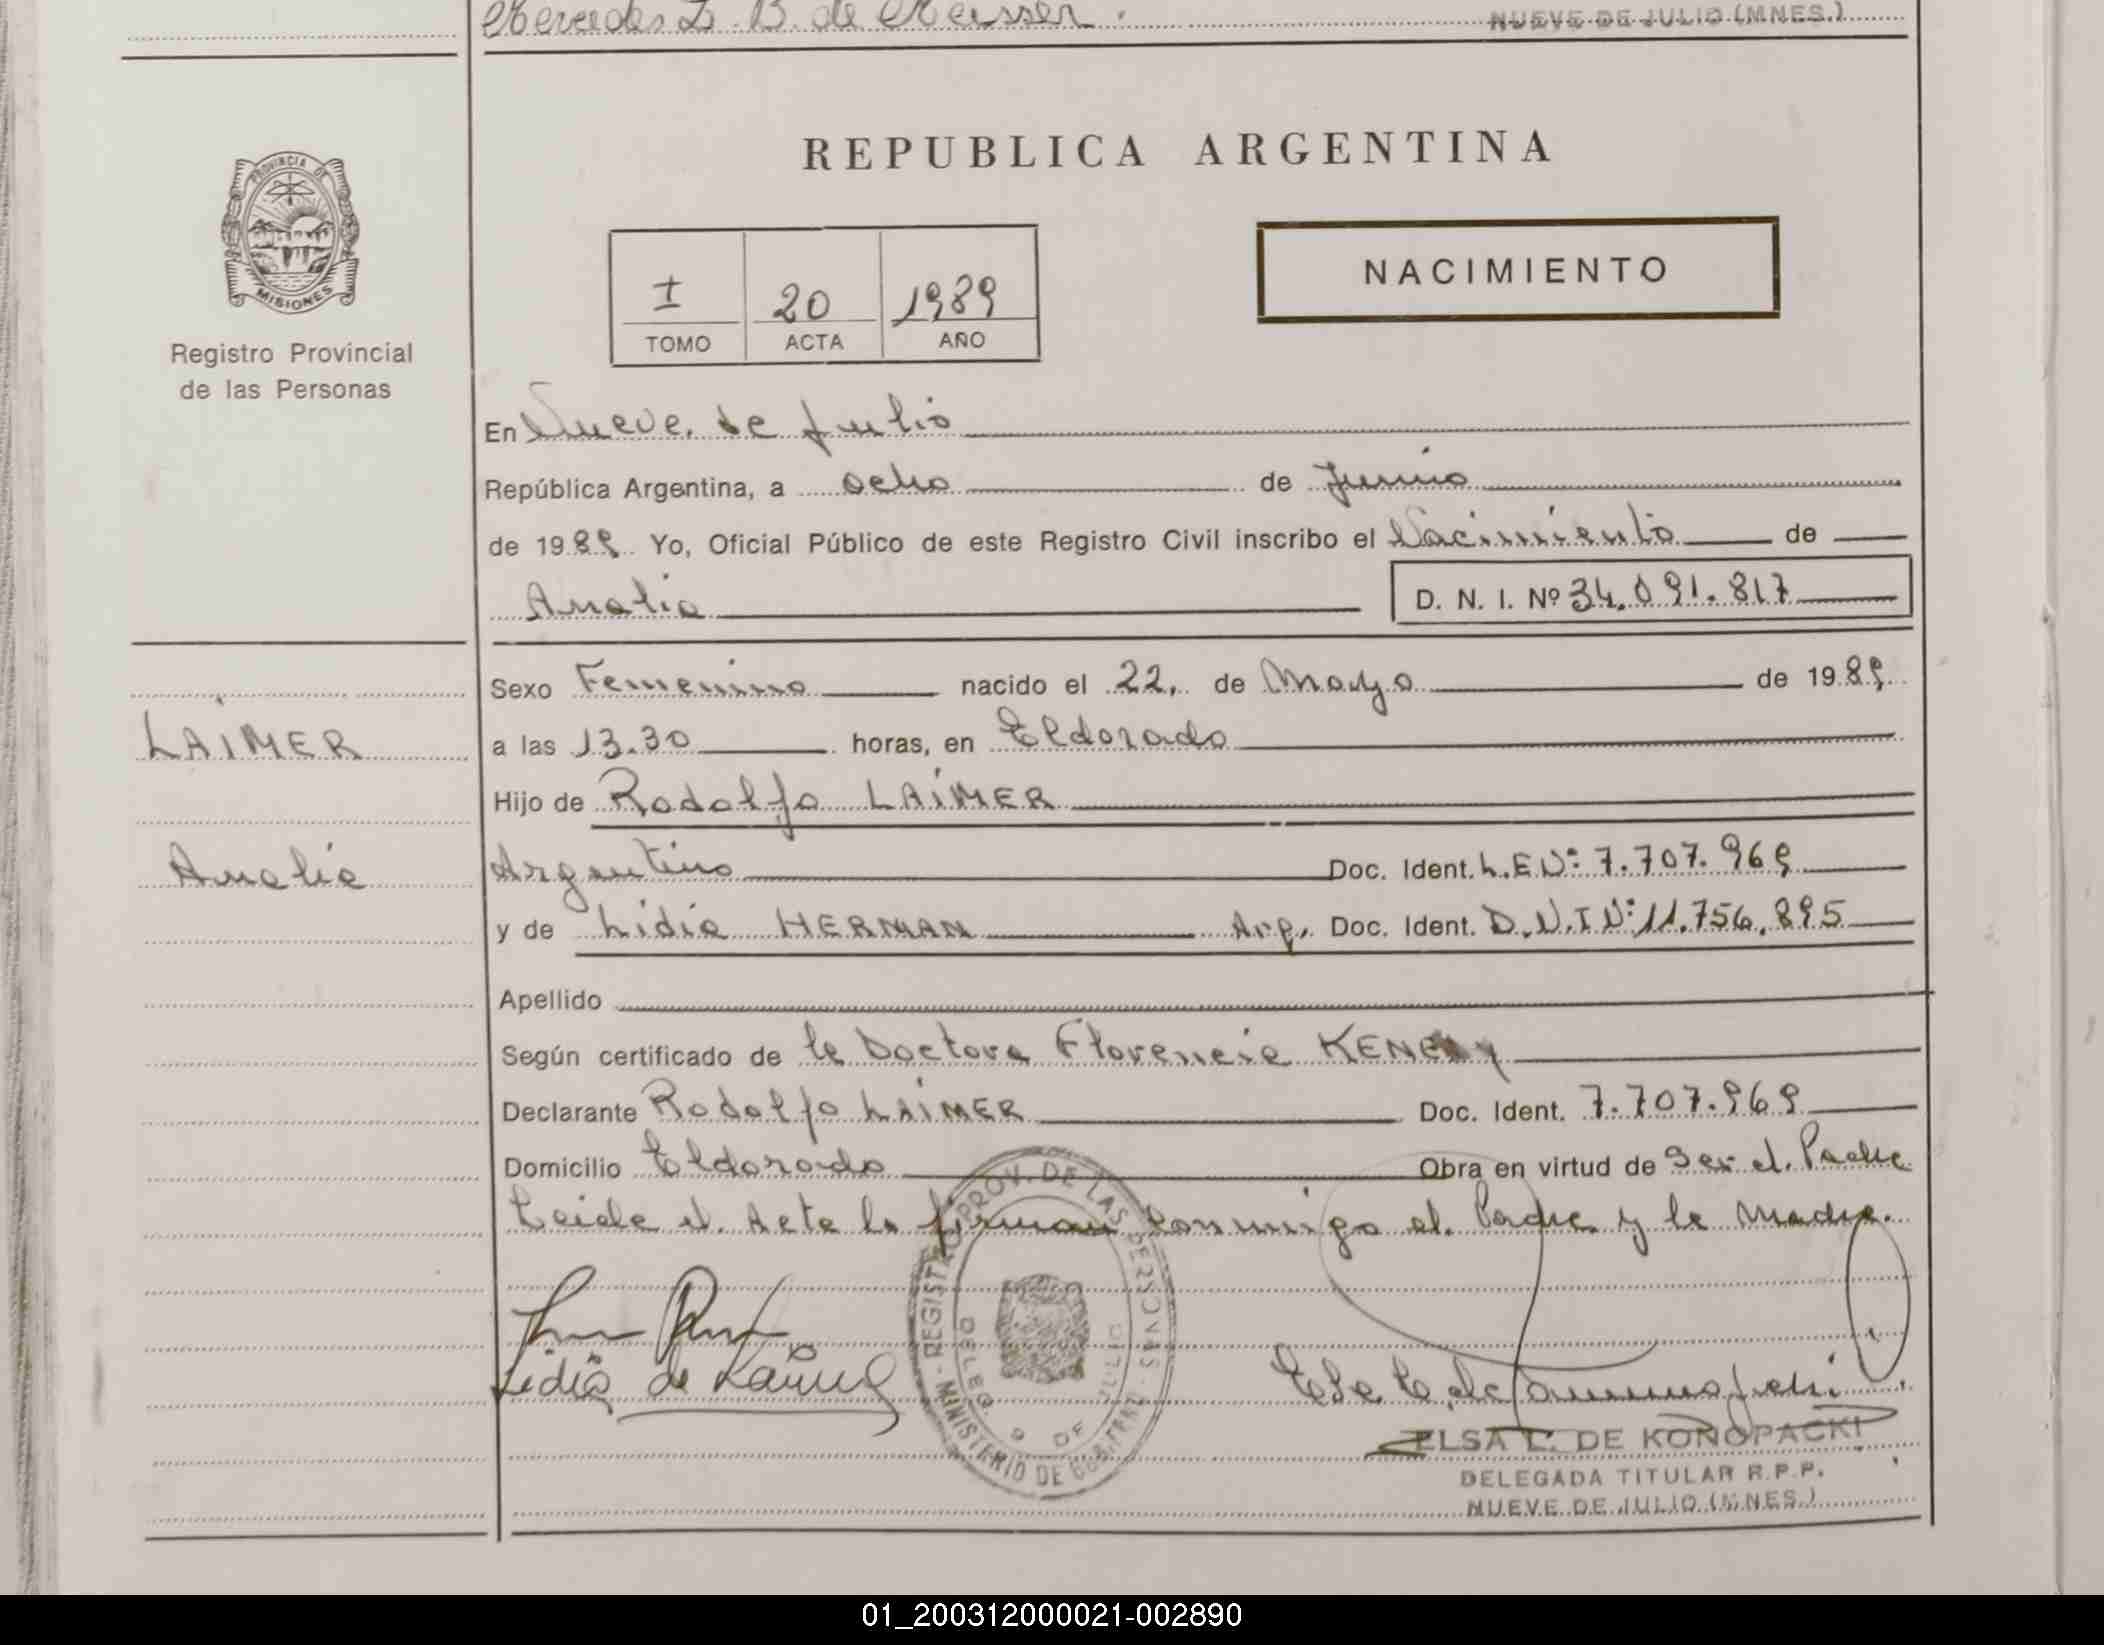 Mercedes L. B. de Meisser.
NUEVE DE JULIO (MNES.)
PROVINCIA DE
MISIONES
Registro Provincial
de las Personas
REPUBLICA ARGENTINA
I 20 1989
TOMO ACTA AÑO
NACIMIENTO
En Nueve de Julio
República Argentina, a ocho de Junio
de 1989. Yo, Oficial Público de este Registro Civil inscribo el Nacimiento de
Analia D. N. I. Nº 34.091.817
Sexo Femenino nacido el 22, de Mayo de 1989
LAIMER
a las 13.30 horas, en Eldorado
Hijo de Rodolfo LAIMER
Analia
Argentino Doc. Ident. L.E Nº: 7.707.969
y de Lidia HERMAN Arg. Doc. Ident. D.N.I Nº: 11.756.895
Apellido
Según certificado de la Doctora Florencia
Declarante Rodolfo LAIMER Doc. Ident. 7.707.969
Domicilio Eldorado Obra en virtud de Ser el Padre
Leida el Acta la firman conmigo el Padre y la Madre.
Lidia de Laimer
REGISTRO PROV. DE LAS PERSONAS - MINISTERIO DE GOBIERNO
DELEG. 9 DE JULIO
ELSA E. DE KONOPACKI
DELEGADA TITULAR R.P.P.
NUEVE DE JULIO (MNES.)
01_200312000021-002890